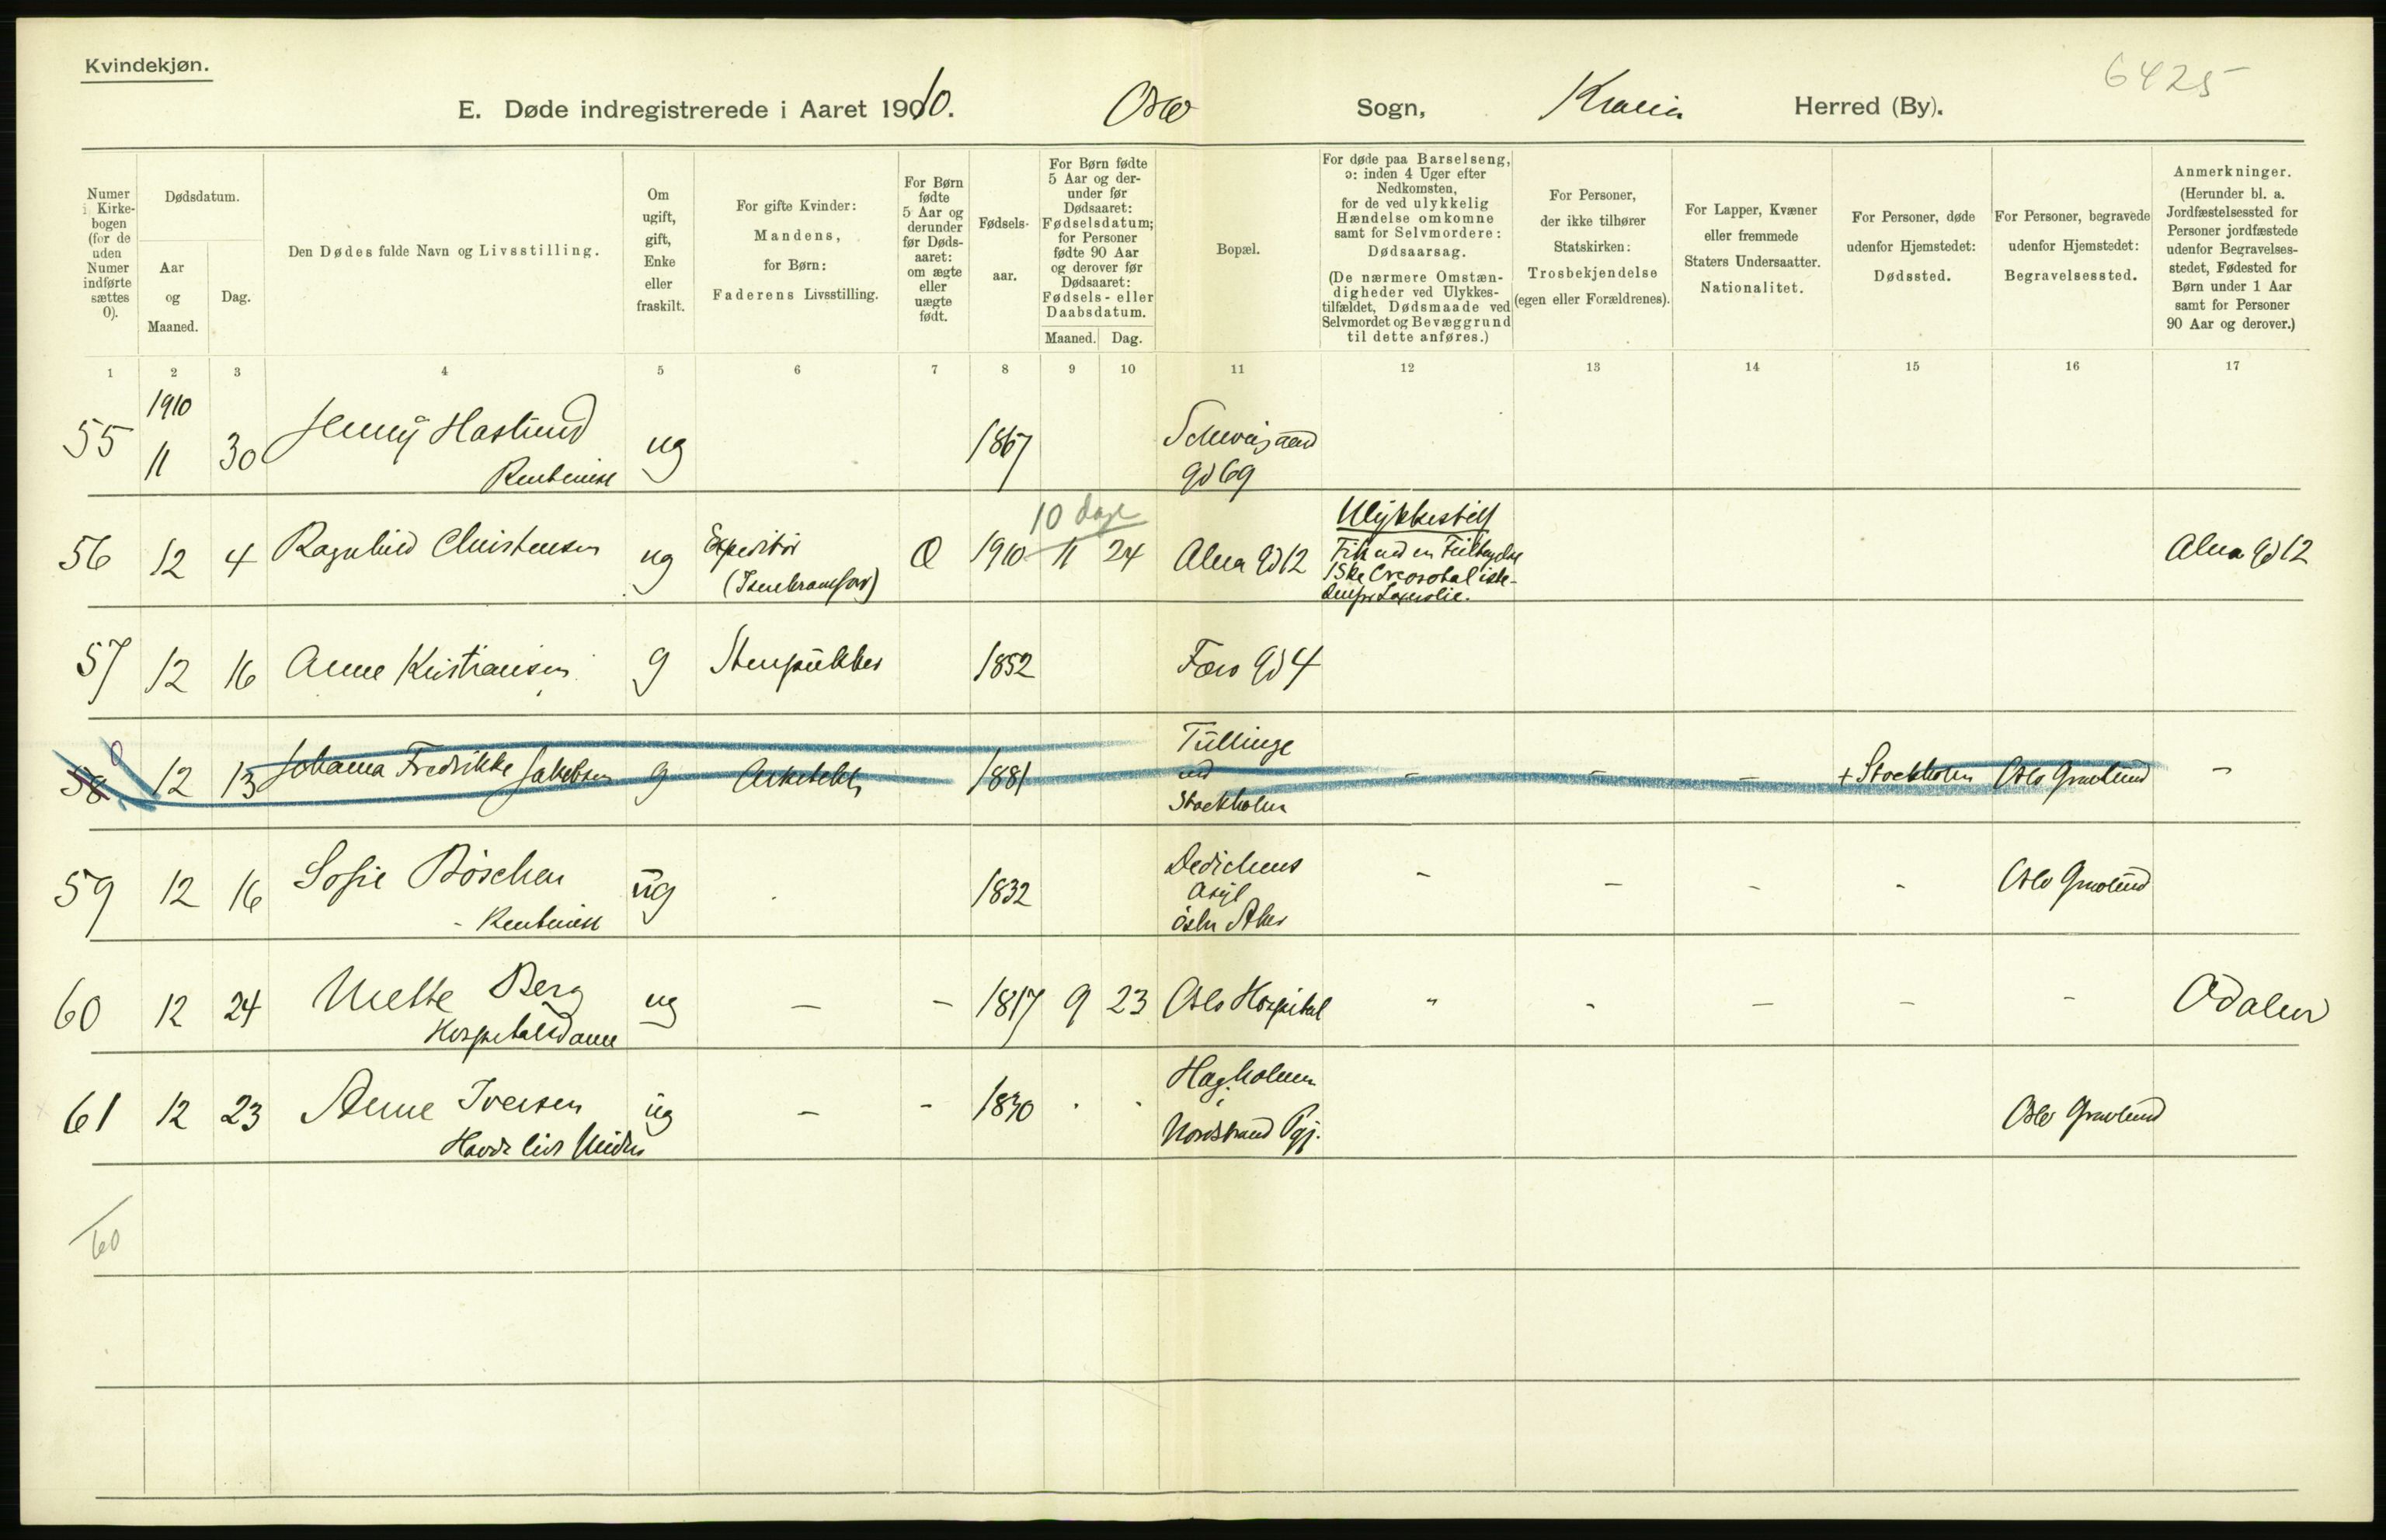 Kvindekjøn.
6425
E. Døde indregistrerede i Aaret 1910. Oslo Sogn, Kr.ania Herred (By).
Numer i Kirke-bogen (for de uden Numer indførte sættes 0).
Dødsdatum.
Aar og Maaned.
Dag.
Den Dødes fulde Navn og Livsstilling.
Om ugift, gift, Enke eller fraskilt.
For gifte Kvinder: Mandens, for Børn: Faderens Livsstilling.
For Børn fødte 5 Aar og derunder før Døds-aaret: om ægte eller uægte født.
Fødsels-aar.
For Børn fødte 5 Aar og der-under før Dødsaaret: Fødselsdatum; for Personer fødte 90 Aar og derover før Dødsaaret: Fødsels- eller Daabsdatum.
Maaned. Dag.
Bopæl.
For døde paa Barselseng, ɔ: inden 4 Uger efter Nedkomsten, for de ved ulykkelig Hændelse omkomne samt for Selvmordere: Dødsaarsag.
(De nærmere Omstæn-digheder ved Ulykkes-tilfældet, Dødsmaade ved Selvmordet og Bevæggrund til dette anføres.)
For Personer, der ikke tilhører Statskirken: Trosbekjendelse (egen eller Forældrenes).
For Lapper, Kvæner eller fremmede Staters Undersaatter. Nationalitet.
For Personer, døde udenfor Hjemstedet: Dødssted.
For Personer, begravede udenfor Hjemstedet: Begravelsessted.
Anmerkninger.
(Herunder bl. a. Jordfæstelsessted for Personer jordfæstede udenfor Begravelses-stedet, Fødested for Børn under 1 Aar samt for Personer 90 Aar og derover.)
1 2 3 4 5 6 7 8 9 10 11 12 13 14 15 16 17
1910
55 11 30 Jenny Haslund ug 1867 Schweigaard
Rentenise gd 69
10 dage Ulykkestilf
56 12 4 Ragnhild Christensen ug Expeditør Æ 1910 11 24 Alna gd 12 Fik ved en Feiltagelse Alna gd 12
(Jernkramforr) 1 Ske Creosotal iste-
denfor Laxerolie.
57 12 16 Anne Kristiansen g Stenpukker 1852 Færø gd 4
58 0 12 13 Johanna Fredrikke Jakobsen g Arkitekt 1881 Tullinge - - - + Stockholm Oslo Gravlund -
ved
Stockholm
59 12 16 Sofie Böschen ug 1832 Dedichens - - - - Oslo Gravlund
- Rentenise Asyl
östre Aker
60 12 24 Mette Berg ug - - 1817 9 23 Oslo Hospital " - - - - Odalen
Hospitalsdame
61 12 23 Anne Iversen ug - - 1830 Hagholmen Oslo Gravlund
Havde livs Midler i
Nordstrand Pgj.
60